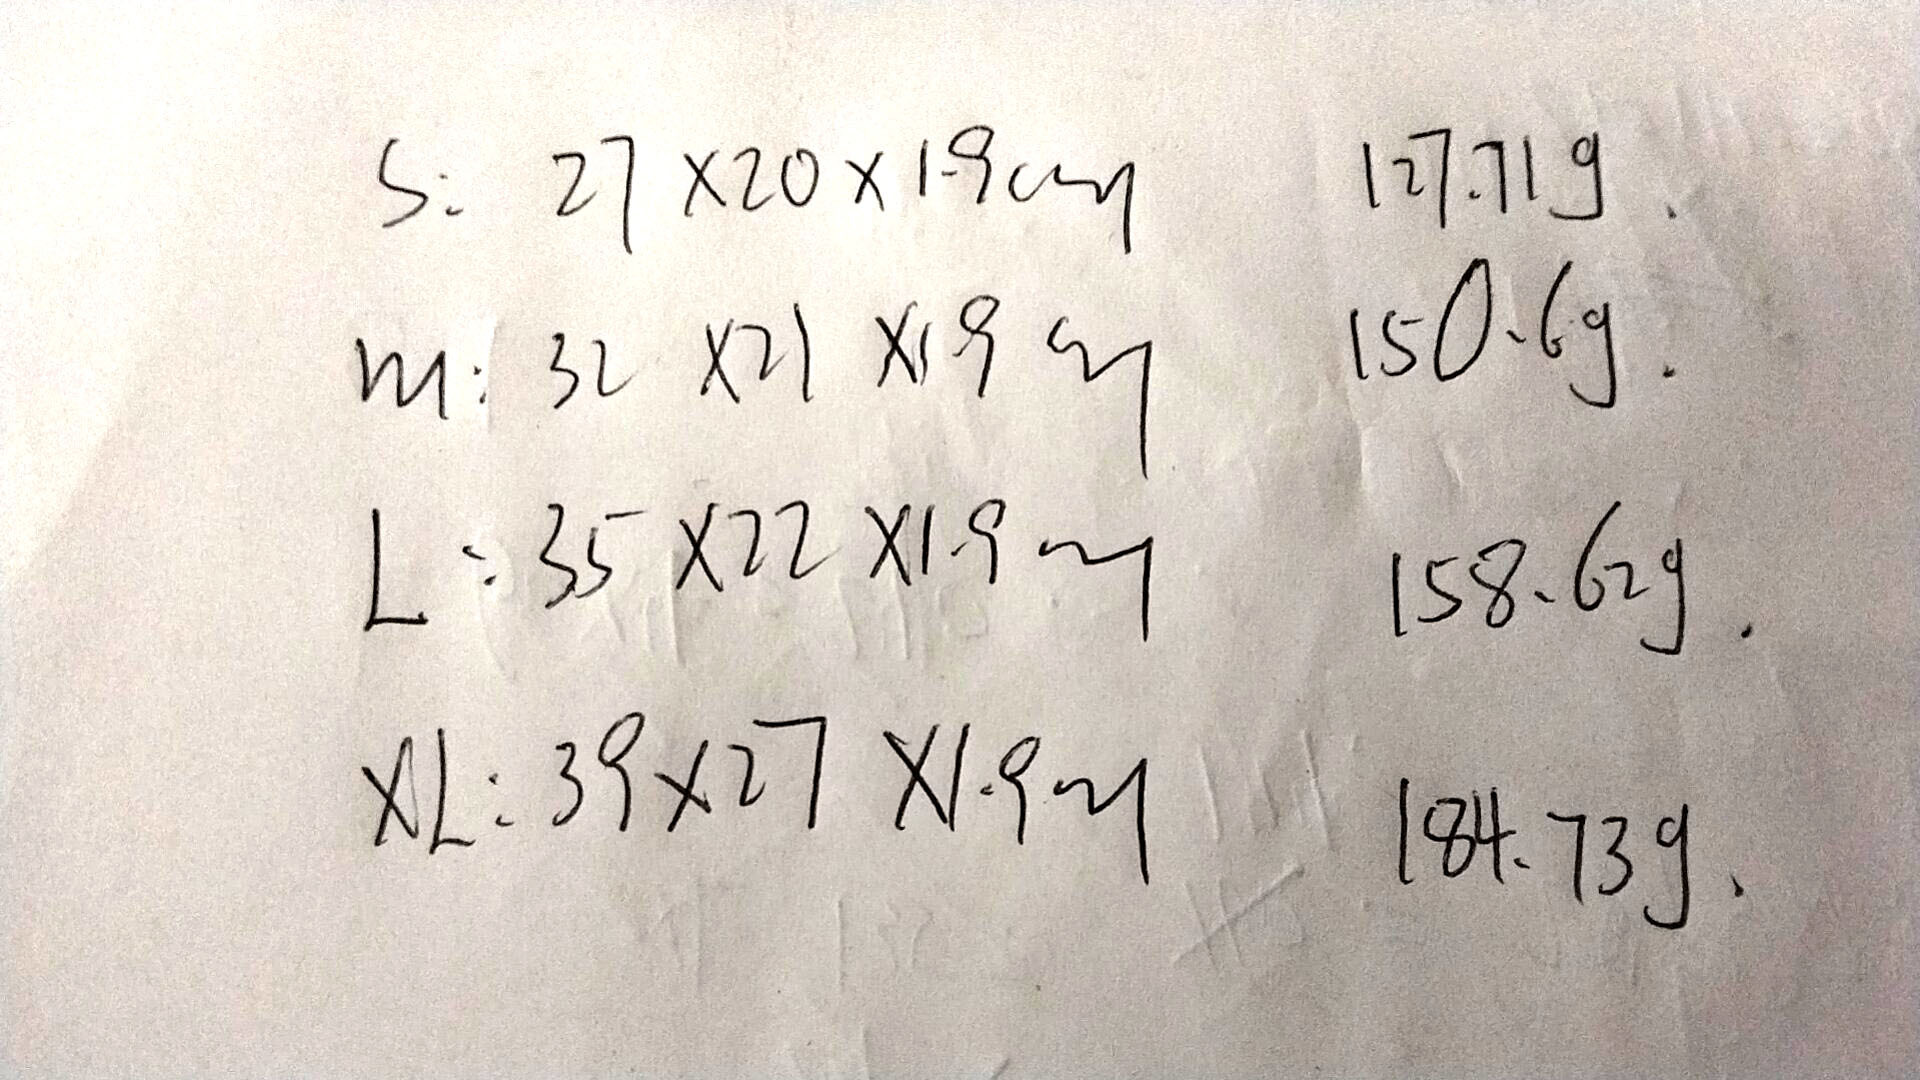 S: 27 x 20 x 1.9cm 127.71g.
M: 32 x 21 x 1.9 cm 150.6g.
L: 35 x 22 x 1.9 cm 158.62g.
XL: 39 x 27 x 1.9 cm 184.73g.